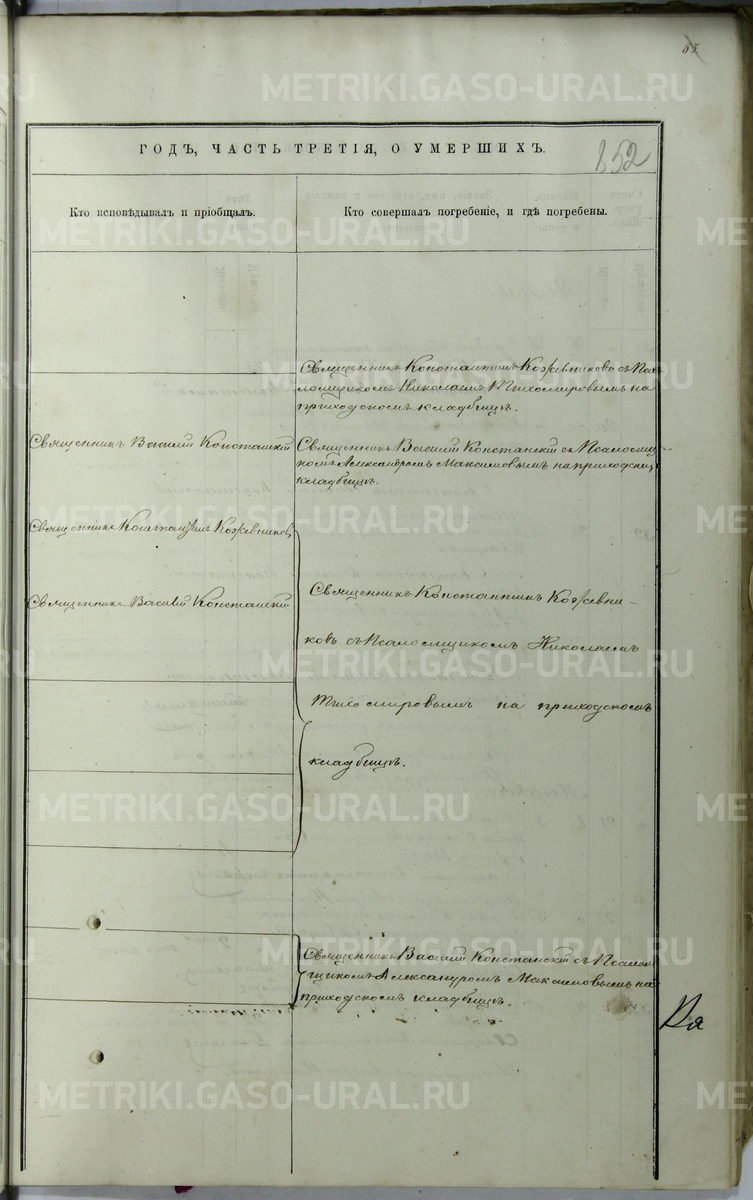 METRIKI.GASO-URAL.RU
152
ГОДЪ, ЧАСТЬ ТРЕТІЯ, О УМЕРШИХЪ.
Кто исповѣдывалъ и пріобщалъ.
Кто совершалъ погребеніе, и гдѣ погребены.
Священникъ Константинъ Кожевниковъ съ Пса-
ломщикомъ Николаемъ Тихомировымъ на
приходскомъ кладбищѣ.
Священникъ Василій Констанскій
Священникъ Василій Констанскій съ Псаломщи-
комъ Александромъ Максимовымъ на приходскомъ
кладбищѣ.
Священникъ Константинъ Кожевниковъ
Священникъ Василій Констанскій
Священникъ Константинъ Кожевни-
ковъ съ Псаломщикомъ Николаемъ
Тихомировымъ на приходскомъ
кладбищѣ.
Священникъ Василій Констанскій съ Псалом-
щикомъ Александромъ Максимовымъ на
приходскомъ кладбищѣ.